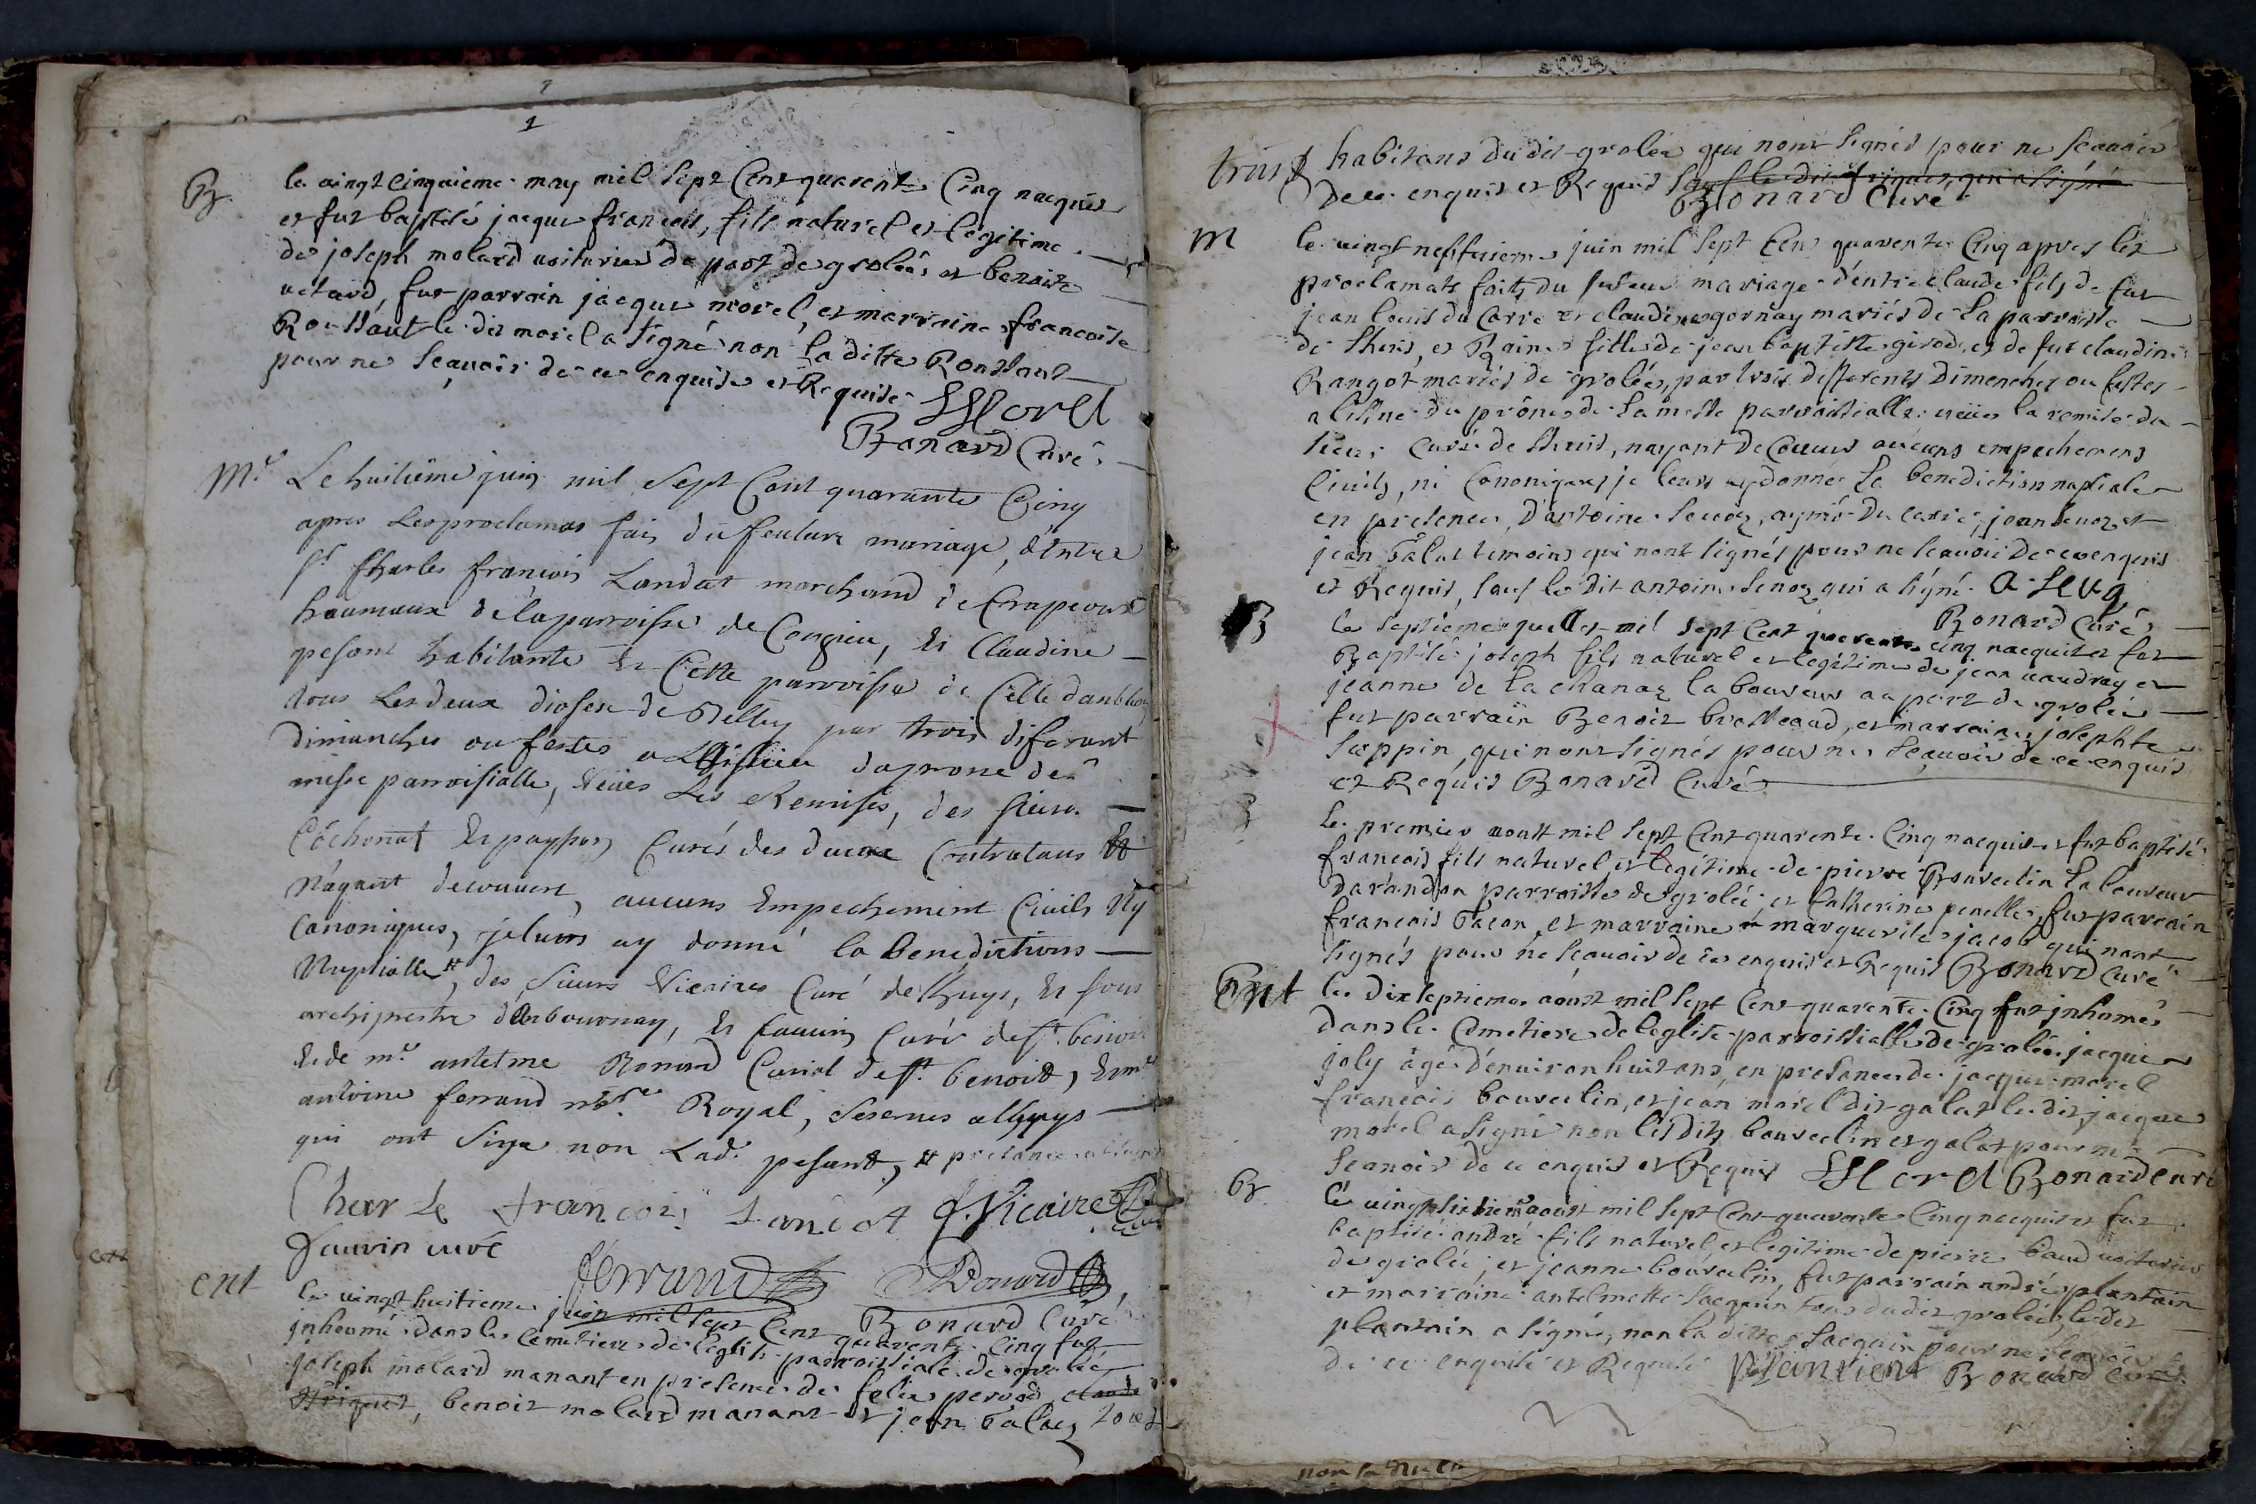 1
B
le vingt cinquieme may mil sept cent quarente cinq nacquit
et fut baptisé jacque francois, fils naturel et legitime
de joseph molard voiturier du port de grolée et benoite
fut parrain jacque morel, et marraine francoise
Roussaut le dit morel a signé non la ditte Roussaut
pour ne sçauoir de ce enquise et Requise JMorel
Bonard Curé
Mr
Le huitième juin mil sept Cent quarante Cinq
apres les proclamas fais du feuture mariage, d'Entre
sr Charles francois Landat marchand de
de la parroisse de Conzieu, Et Claudine
pesant habitante En Cette parroisse de Celle
tous Les deux diosese de Belley par trois diferant
dimanches ou festes a du prone de
messe parroisialle, Veües Les Remises, des sieurs
Cochonat Et paysson Curés des deux Contratans Et
N'ayant decouvert, aucuns Empechement Civils Ny
Canoniques, je leurs ay donné la benedictions
Nuptialle #, des sieurs Vicaires Curé de lhuys, Et sous
archiprestre d'Arbournay, Et fauvin Curé de st. benoit
Et de mr antelme Bonard Curial de st. benoist, Et mr
antoine ferrand Royal,
qui ont Signe non Lad. pesant, # presance
Charle francois Landat J. Vicaire
fauvin curé
ferrand Bonard
ent
Bonard Curé
le vingt huitieme juin mil sept Cent quarente Cinq fut
inhumé dans le Cemetiere de l'eglise parroissiale de grolée
joseph molard manant en presence de felix claude
benoit molard manant et jean Galas tous
trius
habitans du dit grolée qui n'ont signés pour ne sceauoir
de ce enquis et Requis sauf le dit qui a signé
Bonard Curé
M
le vingt neffuiemes juin mil sept Cent quarente Cinq apres les
proclamats faits du futeur mariage d'entre claude fils de fut
jean louis du Carre et claudine gornay mariés de la parroisse
de lhuis, et fille de jean baptiste girod, et de fut claudine
Rangot mariés de grolée, par trois differents dimenches ou festes
a lissue du prônes de la messe parroissialle veües la remise du
sieur Curé de lhuis, n'ayant decouver aucuns empechemens
Civils, ni Canoniques je leurs ay donné la benediction nuptiale
en presence d'antoine aymé du carre, jean et
jean Galas temoins qui n'ont signés pour ne sceauoir de ce enquis
et Requis, sauf le dit antoine qui a signé
Bonard Curé
B
le septieme juellet mil sept Cent quarente cinq nacquit et fut
Baptisé joseph fils naturel et legitime de jean vaudray et
jeanne de la chanaz laboureur au port de grolée
fut parrain Benoit et marraine josephte
sappin, qui n'ont signés pour ne sçauoir de ce enquis
et Requis Bonard Curé
le premier aoust mil sept Cent quarente Cinq nacquit et fut baptisé
francois fils naturel et legitime de pierre Bouvelin laboureur
darandon parroisse de grolée et Catherine penelle, fut parrain
francois Gacon et marraine marguerite jacob qui n'ont
signés pour ne sçauoir de ce enquis et Requis Bonard Curé
Ent
le dix septieme aoust mil sept Cent quarente Cinq fut inhumés
dans le Cemetiere de l'eglise parroissialle de grolée jacque
joly âgé d'enuiron huit ans, en presance de jacque morel
francois bouvelin, et jean morel dit galas le dit jacque
morel a signé non les dits bouvelin et galas pour ne
sçauoir de ce enquis et Requis JMorel Bonard Curé
B
le vingt aoust mil sept Cent quarente Cinq nacquit et fut
baptisé andré fils naturel et legitime de pierre baud voiturier
de grolée, et jeanne bouvelin, fut parrain andré plantain
et marraine antelmette Jacquin tous du dit grolée le dit
plantain a signé, non la ditte Jacquin pour ne sçauoir
de ce enquise et Requise plantient Bonard Curé
non la